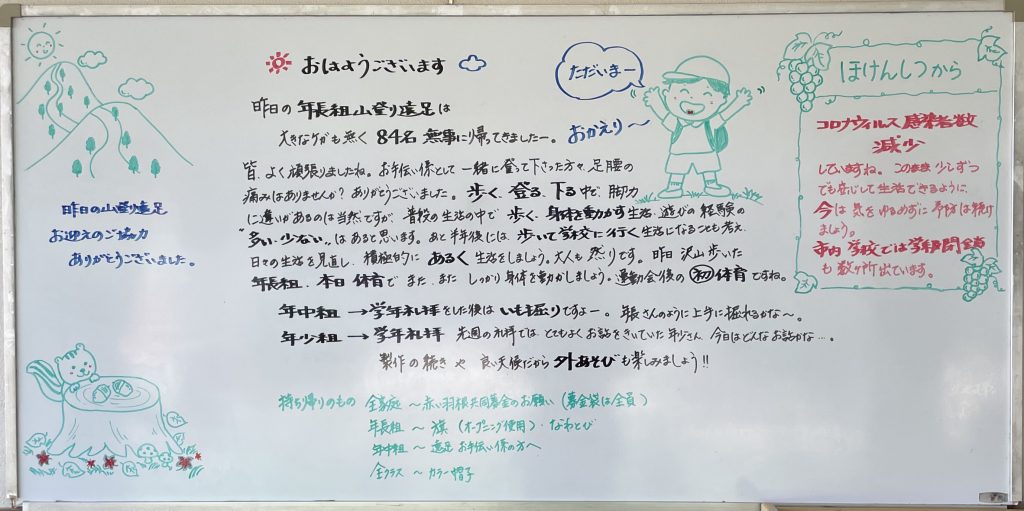 おはようございます
昨日の 年長組 山登り遠足は
大きなケガも無く 84名 無事に帰ってきましたー。
ただいまー
おかえり〜
皆、よく頑張りましたね。お手伝い係として 一緒に登って下さった方々、足腰の
痛みはありませんか? ありがとうございました。歩く、登る、下る 中で、脚力
に違いがあるのは当然ですが、普段の生活の中で 歩く、身体を動かす生活、遊びの経験の
"多い、少ない" はあると思います。あと半年後には、歩いて学校に行く生活になることも考え、
日々の生活を見直し、積極的に あるく 生活をしましょう。大人も然りです。昨日 沢山歩いた
年長組、本日 体育で また、また しっかり身体を動かしましょう。運動会後の 初 体育ですね。
年中組 → 学年礼拝をした後は いも掘りですよー。年長さんのように上手に掘れるかな〜。
年少組 → 学年礼拝 先週の礼拝では、とてもよくお話をきいていた年少さん、今日はどんなお話かな…。
製作の続き や 良い天候だから 外あそびも楽しみましょう!!
持ち帰りのもの 全家庭 〜 赤い羽根共同募金のお願い(募金袋は全員)
年長組 〜 旗(オープニング使用)・なわとび
年中組 〜 遠足 お手伝い係の方へ
全クラス 〜 カラー帽子
昨日の山登り遠足
お迎えのご協力
ありがとうございました。
ほけんしつから
コロナウィルス 感染者数
減少
していますね。このまま 少しずつ
でも安心して生活できるように、
今は 気をゆるめずに 予防は続け
ましょう。
市内 学校では学級閉鎖
も 数ヶ所出ています。